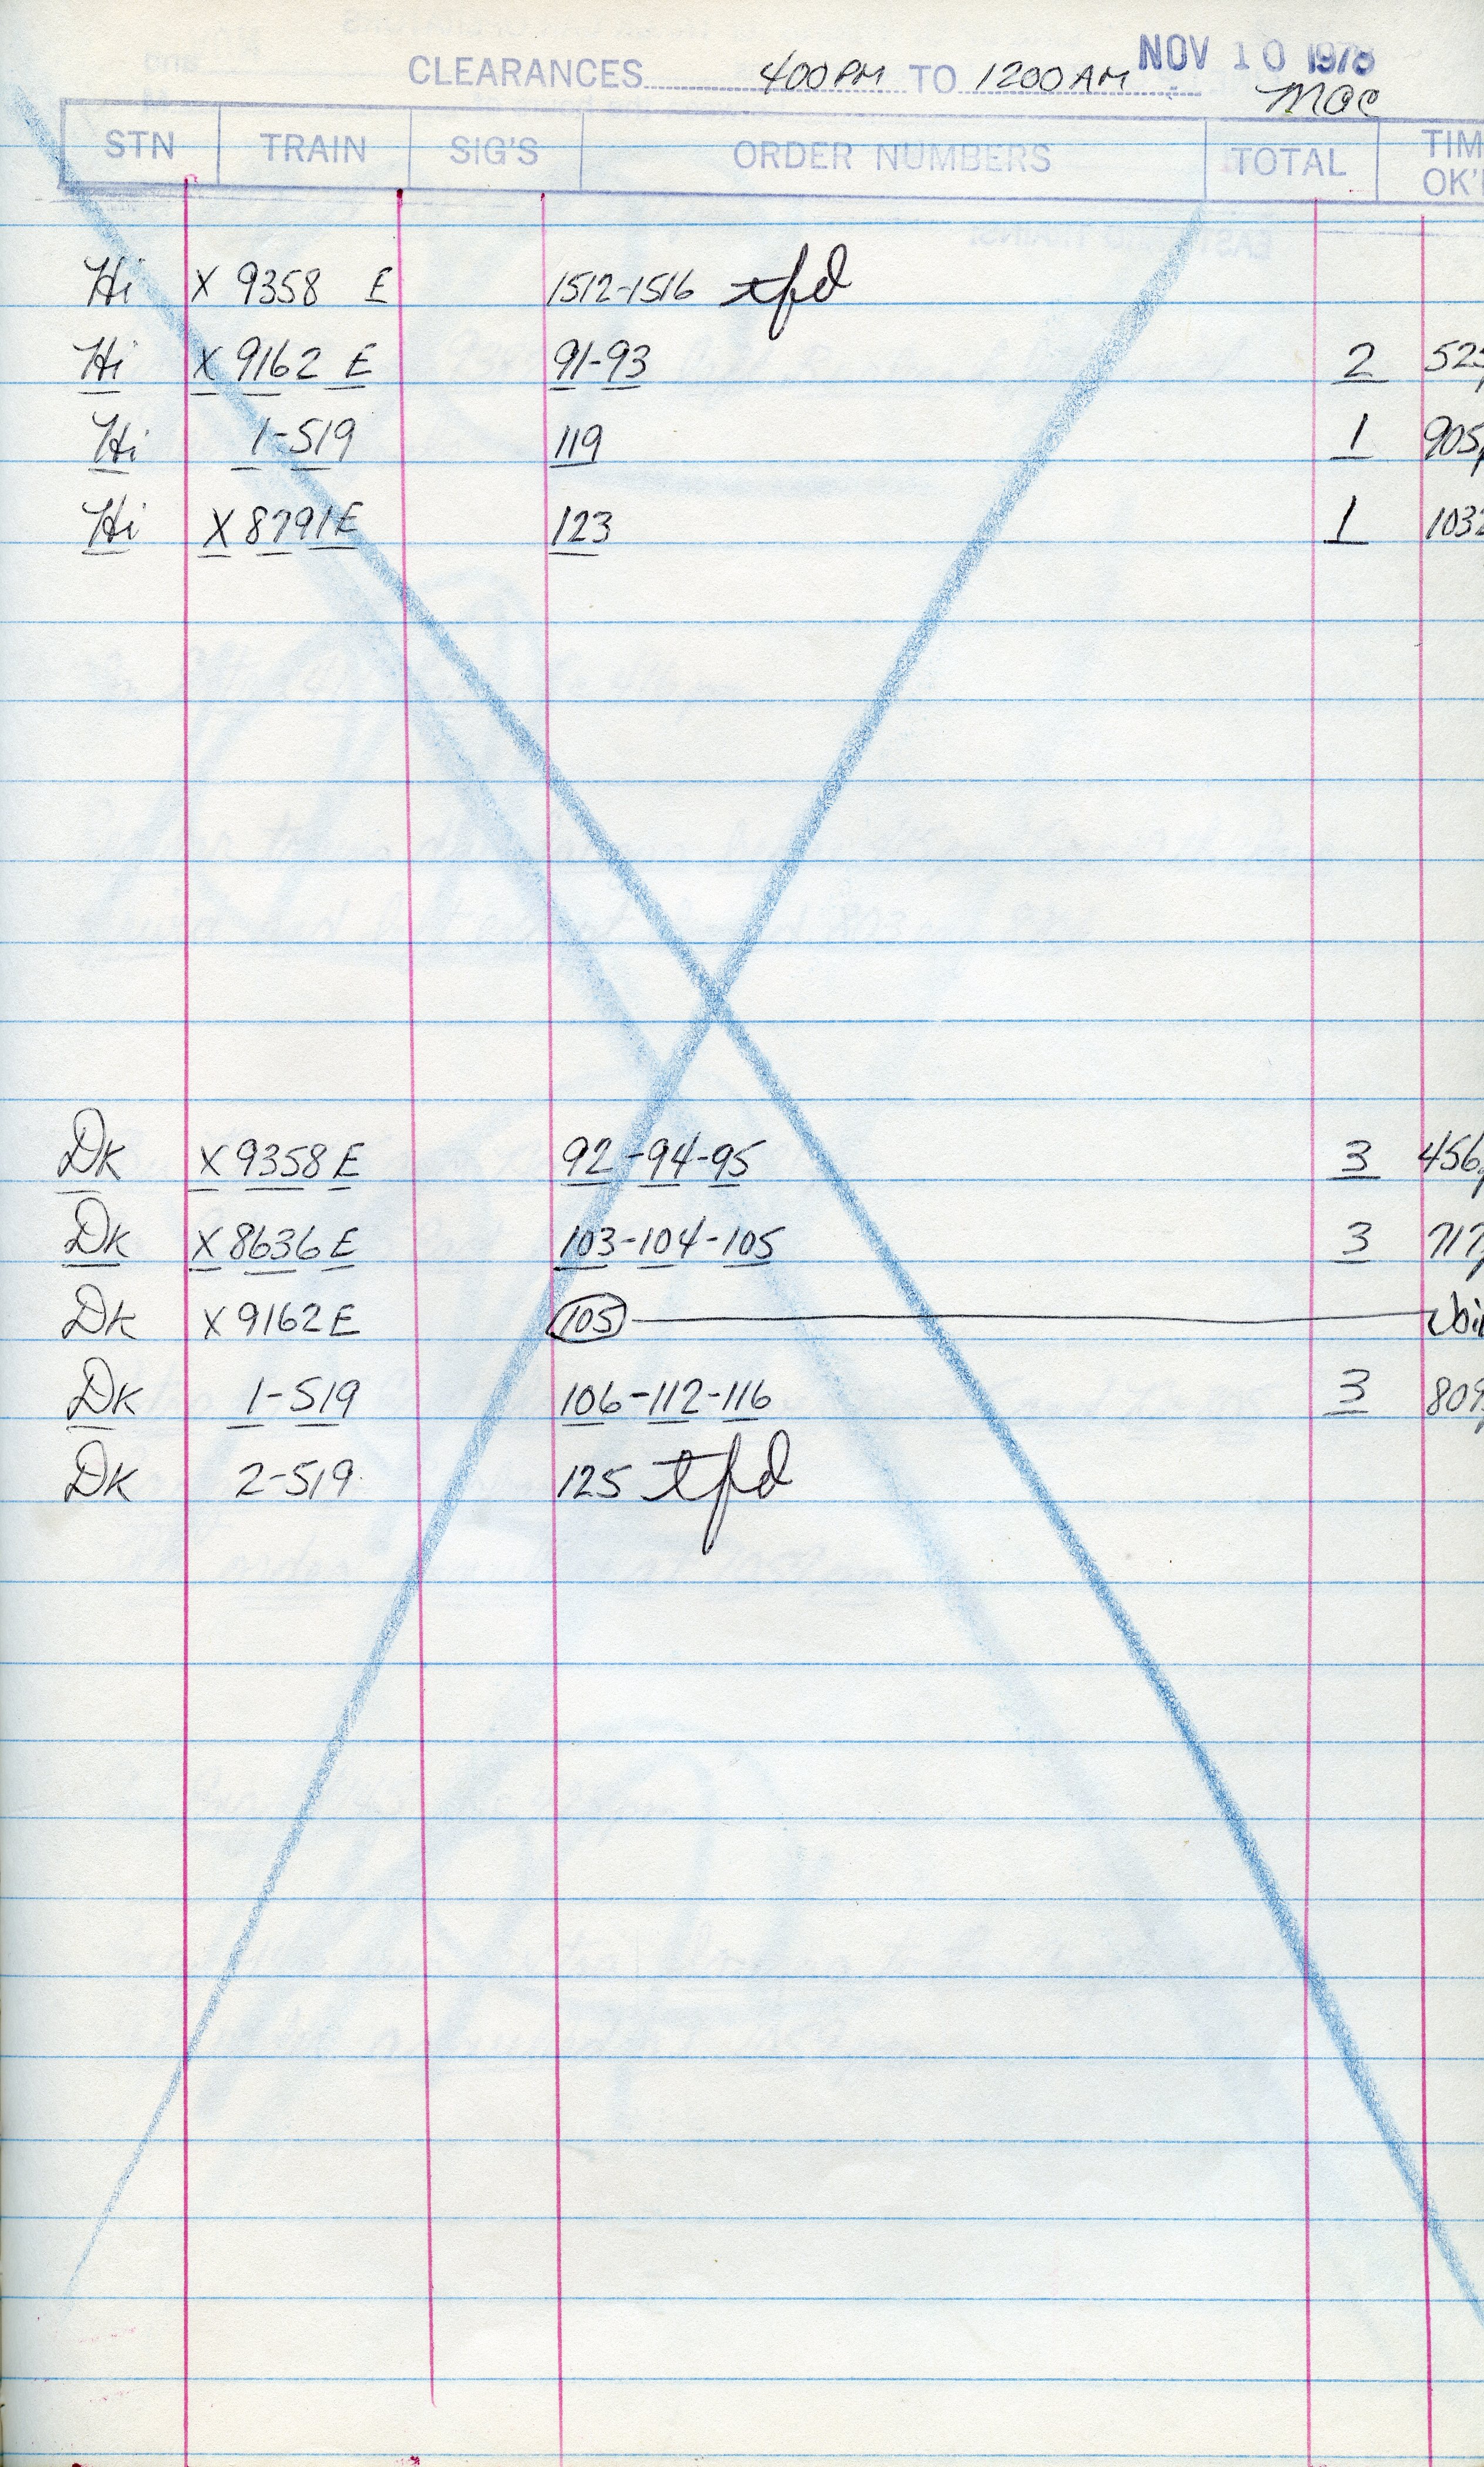 CLEARANCES 400PM TO 1200AM NOV 10 1978
MAC
STN TRAIN SIG'S ORDER NUMBERS TOTAL TIM
OK'
Hi X 9358 E 1512-1516 tfd
Hi X 9162 E 91-93 2 525
Hi 1-519 119 1 905p
Hi X 8791E 123 1 1032
Dk X 9358 E 92-94-95 3 456p
Dk X 8636 E 103-104-105 3 717p
Dk X 9162 E 105
Dk 1-519 106-112-116 3 809p
Dk 2-519 125 tfd